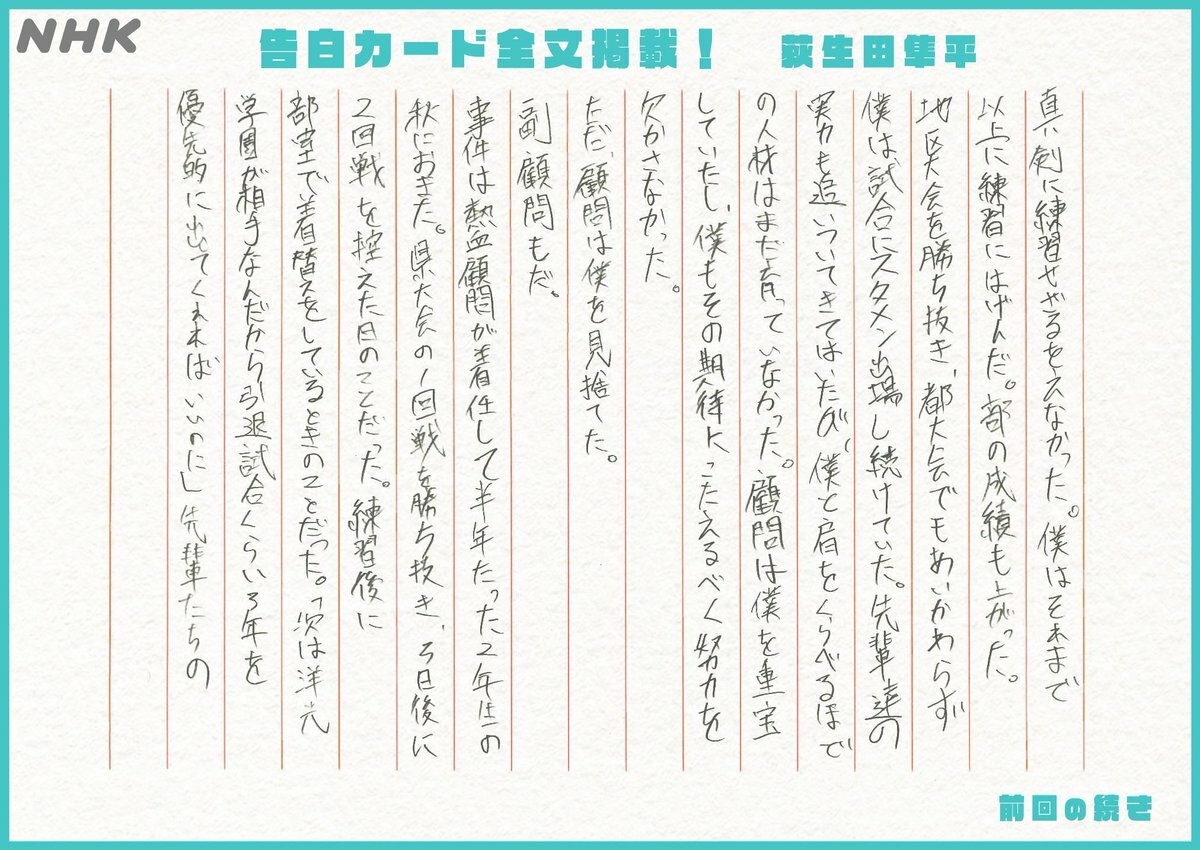 NHK
告白カード全文掲載！
萩生田隼平
真剣に練習せざるをえなかった。僕はそれまで
以上に練習にはげんだ。部の成績も上がった。
地区大会を勝ち抜き、都大会でもあいかわらず
僕は試合にスタメン出場し続けていた。先輩達の
実力も追いついてきてはいたが、僕と肩をくらべるほで
の人材はまだ育っていなかった。顧問は僕を重宝
していたし、僕もその期待にこたえるべく努力を
欠かさなかった。
ただ、顧問は僕を見捨てた。
副顧問もだ。
事件は熱血顧問が着任して半年たった2年生の
秋におきた。県大会の1回戦を勝ち抜き、3日後に
2回戦を控えた日のことだった。練習後に
部室で着替えをしているときのことだった。「次は洋光
学園が相手なんだから引退試合くらい3年を
優先的に出てくれればいいのに」先輩たちの
前回の続き